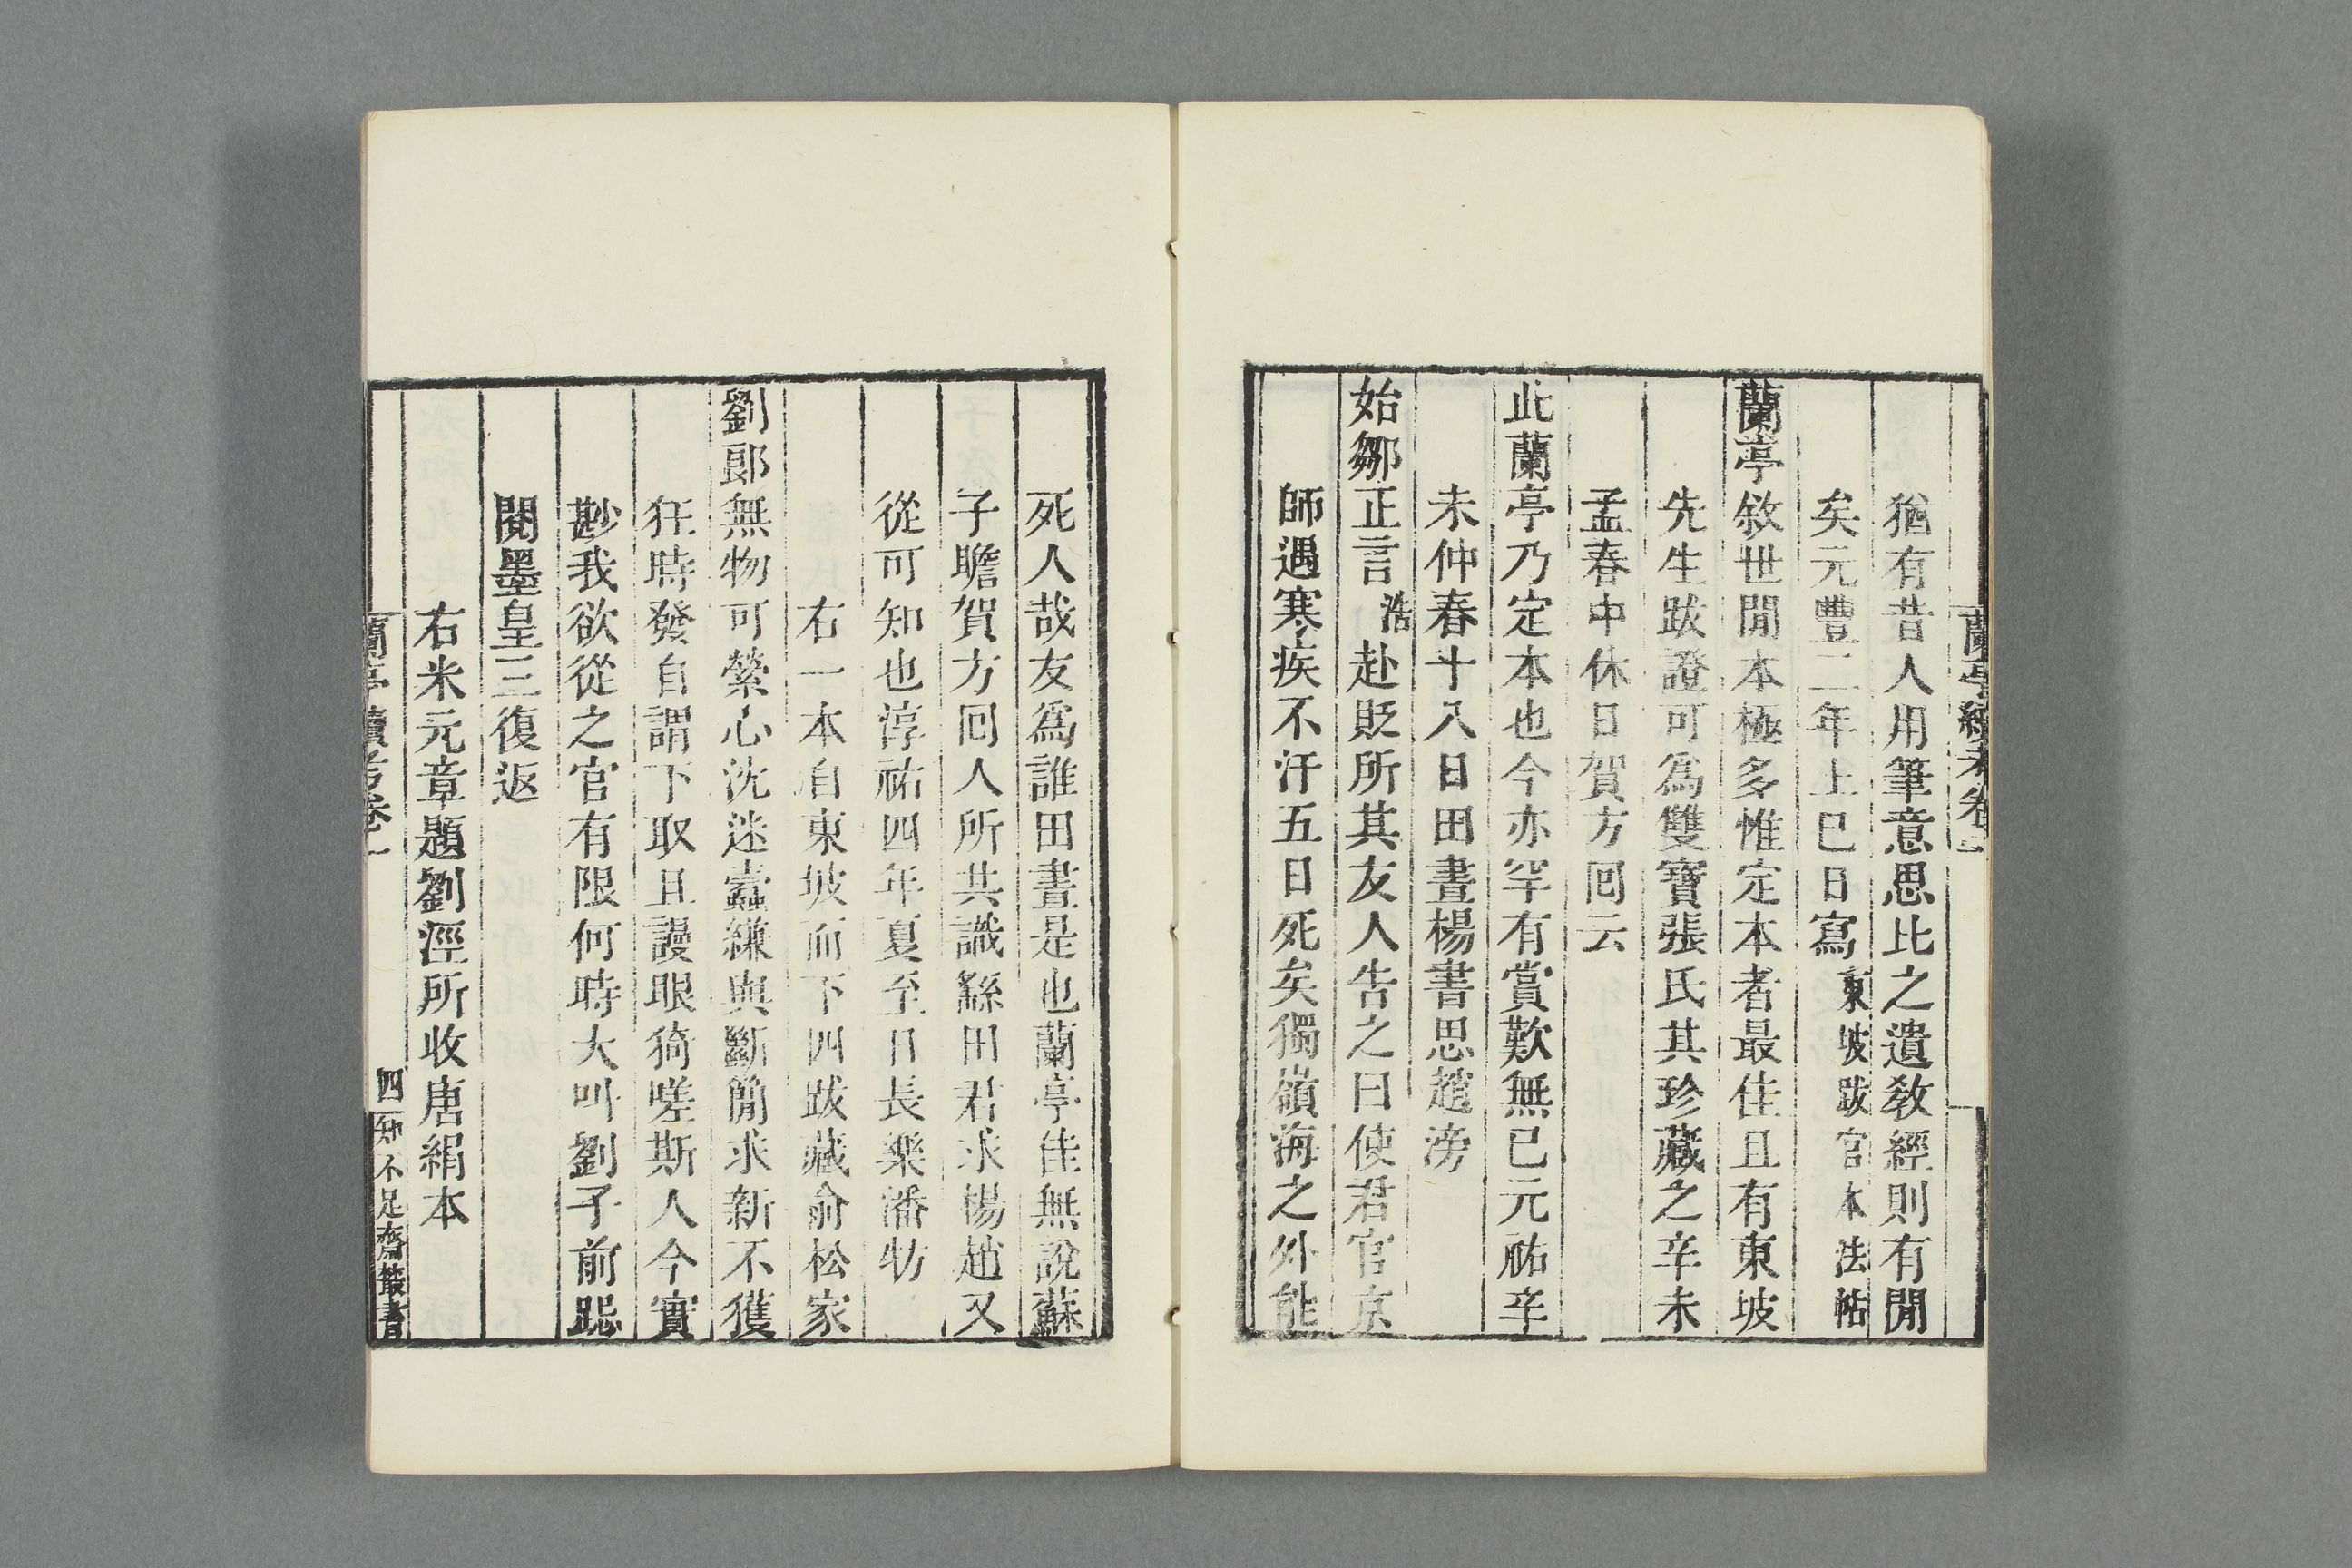 蘭亭續考卷二
猶有昔人用筆意思比之遺教經則有閒
矣元豐二年上巳日寫東坡跋官本法帖
蘭亭敘世閒本極多惟定本者最佳且有東坡
先生跋證可爲雙寶張氏其珍藏之辛未
孟春中休日賀方回云
此蘭亭乃定本也今亦罕有賞歎無已元祐辛
未仲春十八日田晝楊書思趙滂
始鄒正言浩赴貶所其友人告之曰使君官京
師遇寒疾不汗五日死矣獨嶺海之外能
死人哉友爲誰田晝是也蘭亭佳無說蘇
子瞻賀方回人所共識繇田君求楊趙又
從可知也淳祐四年夏至日長樂潘牥
右一本自東坡而下四跋藏俞松家
劉郎無物可縈心沈迷蠹縑與斷簡求新不獲
狂時發自謂下取且謾眼猗嗟斯人今實
尠我欲從之官有限何時大叫劉子前跽
閱墨皇三復返
右米元章題劉涇所收唐絹本
蘭亭續考卷一
四
知不足齋叢書